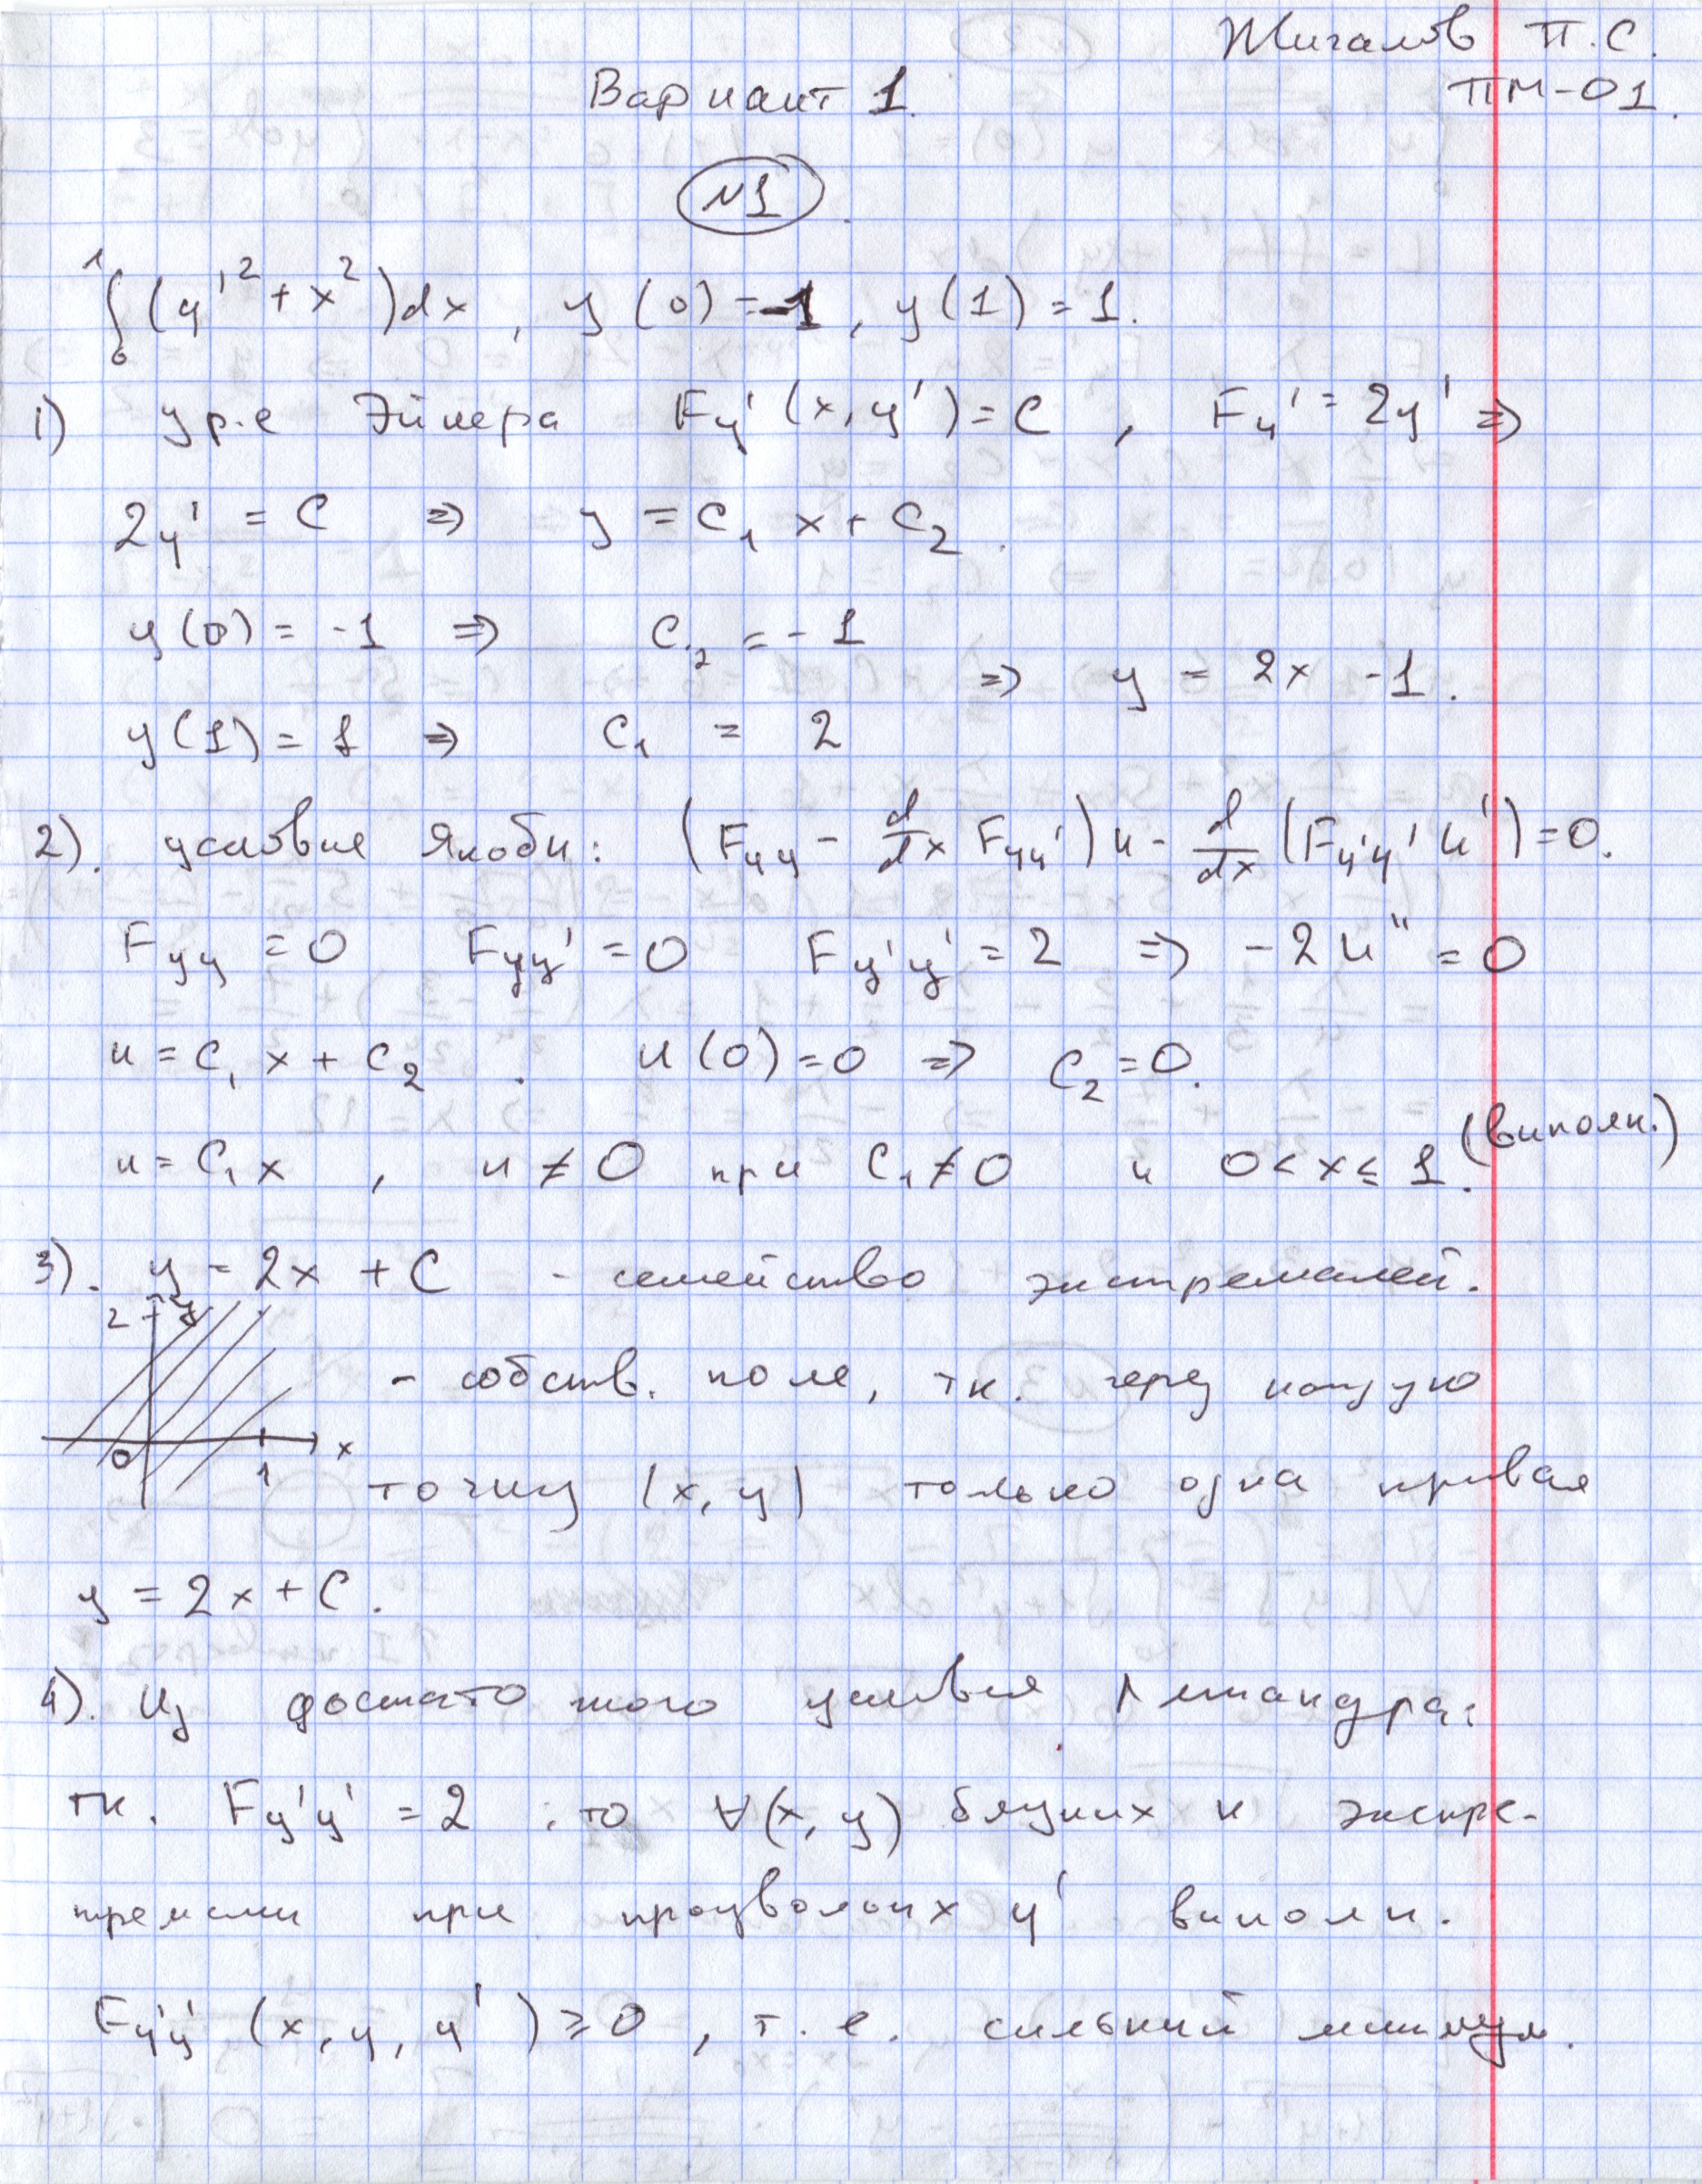 Жигалов П.С.
ПМ-01.
Вариант 1.
№1.
∫₀¹ (y'² + x²)dx, y(0) = -1, y(1) = 1.
1) ур-е Эйлера Fy'(x, y') = C, Fy' = 2y' ⇒
2y' = C ⇒ y = C₁x + C₂.
y(0) = -1 ⇒ C₂ = -1
⇒ y = 2x - 1.
y(1) = 1 ⇒ C₁ = 2
2). условие Якоби: (Fyy - d/dx Fyy')u - d/dx (Fy'y' u') = 0.
Fyy = 0 Fyy' = 0 Fy'y' = 2 ⇒ -2u'' = 0
u = C₁x + C₂. u(0) = 0 ⇒ C₂ = 0.
u = C₁x, u ≠ 0 при C₁ ≠ 0 и 0 < x ≤ 1. (выполн.)
3). y = 2x + C - семейство экстремалей.
2 y
- собств. поле, тк. через каждую
0 1 x
точку (x, y) только одна кривая
y = 2x + C.
4). Из достаточного условия Лежандра:
тк. Fy'y' = 2, то ∀(x, y) близких к экстре-
тремали при произвольных y' выполн.
Fy'y'(x, y, y') ≥ 0, т.е. сильный минимум.